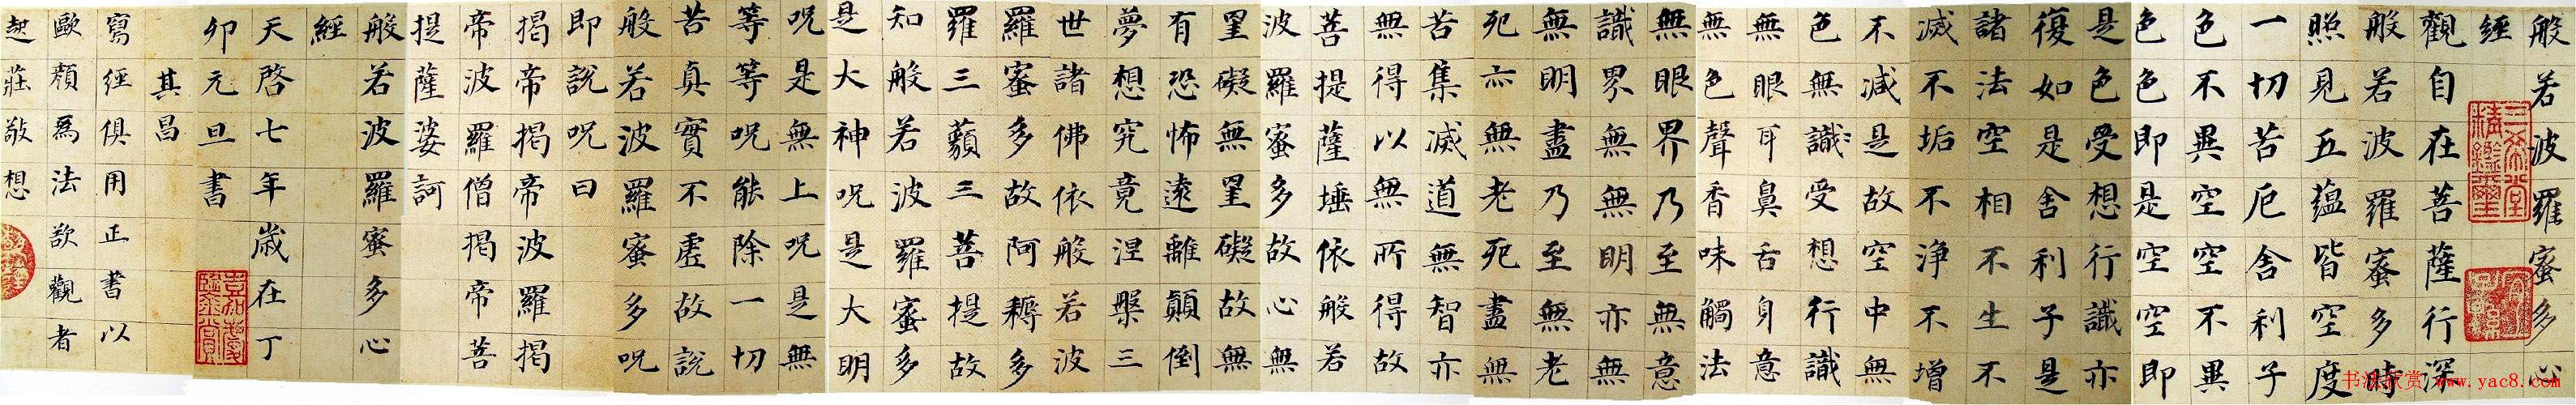 般若波羅蜜多心
經
觀自在菩薩行深
般若波羅蜜多時
照見五蘊皆空度
一切苦厄舍利子
色不異空空不異
色色即是空空即
是色受想行識亦
復如是舍利子是
諸法空相不生不
滅不垢不淨不增
不減是故空中無
色無識受想行識
無眼耳鼻舌身意
無色聲香味觸法
無眼界乃至無意
識界無無明亦無
無明盡乃至無老
死亦無老死盡無
苦集滅道無智亦
無得以無所得故
菩提薩埵依般若
波羅蜜多故心無
罣礙無罣礙故無
有恐怖遠離顛倒
夢想究竟涅槃三
世諸佛依般若波
羅蜜多故阿耨多
羅三藐三菩提故
知般若波羅蜜多
是大神呪是大明
呪是無上呪是無
等等呪能除一切
苦真實不虛故說
般若波羅蜜多呪
即說呪曰
揭帝揭帝波羅揭
帝波羅僧揭帝菩
提薩婆訶
般若波羅蜜多心
經
天啓七年歲在丁
卯元旦書
其昌
寫經俱用正書以
歐顏爲法欲觀者
起莊敬想
三希堂精鑑璽
书法欣赏 www.yac8.com